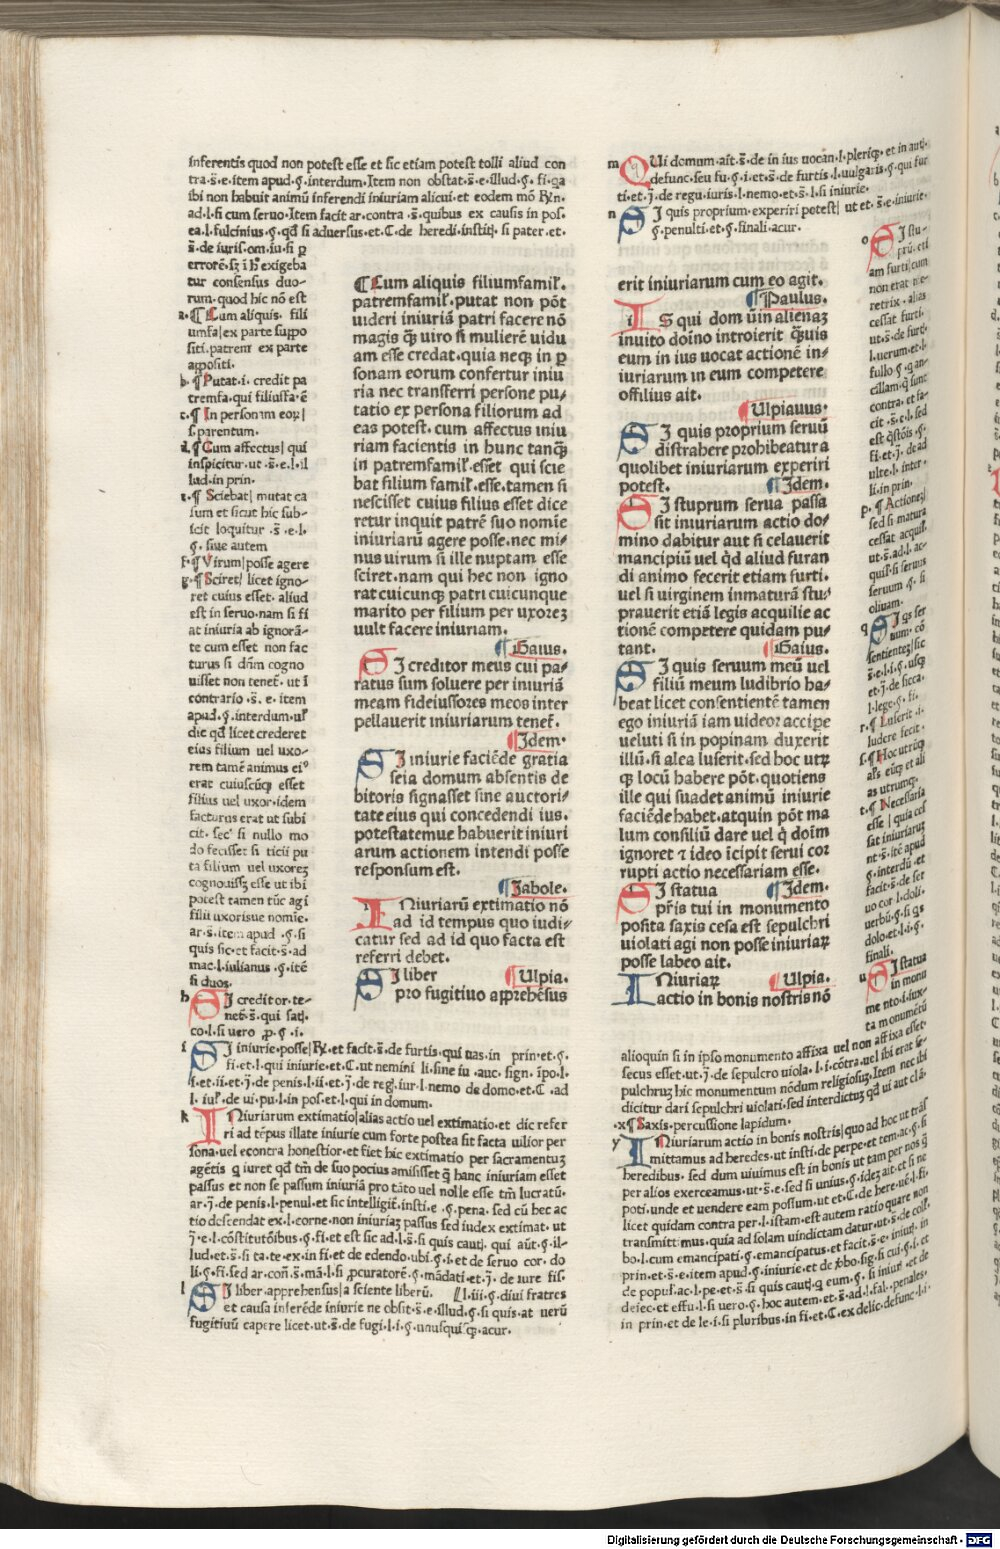 inferentis quod non potest esse et sic etiam potest tolli aliud con
tra·s̄·e·item apud·§·interdum·Item non obstat·s̄·e·illud·§·fi·qa
ibi non habuit animū inferendi iniuriam alicui·et eodem mō
ad·l·si cum seruo·Item facit ar·contra·s̄·quibus ex causis in pos·
ea·l·fulcinius·§·qd̄ si aduersus·et·C·de heredi·institɉ·si pater·et·
s̄·de iuris·om·iu·si ꝑ
errorē·sꝫ ī exigeba
tur consensus duo-
rum·quod hic nō est
a·¶ Cum aliquis· fili
umfa|ex parte suppo
siti·patrem ex parte
appositi·
b·¶ Putat·i·credit pa
tremfa·qui filiusfa·ē
c·¶ In personam eoꝝ|
s·parentum·
d·¶ Cum affectus|qui
inspicitur·ut·s̄·e·l·il
lud·in prin·
e·¶ Sciebat|mutat ca
sum et sicut hic sub-
icit loquitur·s̄·e·l·
§·siue autem
f·¶ Virum|posse agere
g·¶ Sciret|licet igno-
ret cuius esset·aliud
est in seruo·nam si fi
at iniuria ab ignorā-
te cum esset non fac
turus si dn̄m cogno
uisset non tenet̄·ut ī
contrario·s̄·e·item
apud·§·interdum·
die qd̄ licet crederet
eius filium uel uxo-
rem tamē animus
erat cuiuscūqꝫ esset
filius uel uxor·idem
facturus erat ut subi
cit· si nullo mo
do fecisset si ticii pu
ta filium uel uxorez
cognouissꝫ esse ut ibi
potest tamen tūc agi
filii uxorisue nomīe·
ar·s̄·item apud·§·si
quis sic·et facit·s̄·ad
mac·l·iulianus·§·itē
si duos·
h SI creditor·te-
net̄·s̄·qui satɉ·
co·l·si uero·ꝓ·§·i·
i SI iniurie·posse|·et facit·s̄·de furtis·qui uas·in prin·et·§·
fi·et·l·qui iniurie·et·C·ut nemini li·sine iu·auc·sign·īpo·l·
i·et·ii·et·ɉ·de penis·l·ii·et·ɉ·de regɉ·iur·l·nemo de domo·et·C·ad
l·iul̓·de ui·pu·l·in pos·et·l·qui in domum·
k INiuriarum extimatio|alias actio uel extimatio·et dic refer
ri ad tēpus illate iniurie cum forte postea sit facta uilior per
sona·uel econtra honestior·et fiet hic extimatio per sacramentuꝫ
agētis qͥ iuret qd̄ tm̄ de suo pocius amisisset qͣ hanc iniuriam esset
passus et non se passum iniuriā pro tāto uel nolle esse tm̄ lucratū·
ar·ɉ·de penis·l·penul·et sic intelligit̄·insti·e·§·pena·sed cū hec ac
tio descendat ex·l·corne·non iniuriaꝫ passus sed iudex extimat·ut
ɉ·e·l·cōstitutōibus·§·fi·et est sic ad·l·s̄·si quis cautɉ·qui aūt·§·il-
lud·et·s̄·si ta·te·ex·in fi·et de edendo·ubi·§·i·et de seruo cor·do
li·§·fi·sed ar·con̄·s̄·mā·l·si ꝓcuratorē·§·mādati·et·ɉ·de iure fis·
l SI liber·apprehensus|a sciente liberū· l·iii·§·diui fratres
et causa inferēde iniurie ne obsit·s̄·e·illud·§·si quis·at uerū
fugitiuū capere licet·ut·s̄·de fugi·l·i·§·unusquisqꝫ·acur·
¶ Cum aliquis filiumfamil̓·
patremfamil̓·putat non pōt
uideri iniuriā patri facere nō
magis qͣꝫ uiro si mulierē uidu
am esse credat·quia neqꝫ in ꝑ
sonam eorum confertur iniu
ria nec transferri persone pu-
tatio ex persona filiorum ad
eas potest·cum affectus iniu
riam facientis in hunc tanqͣꝫ
in patremfamil̓·esset qui scie
bat filium famil̓·esse·tamen si
nescisset cuius filius esset dice
retur inquit patrē suo nomīe
iniuriarū agere posse·nec mi-
nus uirum si ille nuptam esse
sciret·nam qui hec non igno
rat cuicunqꝫ patri cuicunque
marito per filium per uxoreꝫ
uult facere iniuriam·
¶ Gaius·
SI creditor meus cui pa-
ratus sum soluere per iniuriā
meam fideiussores meos inter
pellauerit iniuriarum tenet̄·
¶ Idem·
SI iniurie faciēde gratia
seia domum absentis de
bitoris signasset sine auctori-
tate eius qui concedendi ius·
potestatemue habuerit iniuri
arum actionem intendi posse
responsum est·
¶ Iabole·
INiuriarū extimatio nō
ad id tempus quo iudi-
catur sed ad id quo facta est
referri debet·
SI liber ¶ Ulpia·
pro fugitiuo apprehēsus
erit iniuriarum cum eo agit·
¶ Paulus·
IS qui domūin alienaꝫ
inuito doīno introierit qͣꝫuis
eum in ius uocat actionē in-
iuriarum in eum competere
offilius ait·
¶ Ulpiauus·
SI quis proprium seruū
distrahere prohibeatur a
quolibet iniuriarum experiri
potest· ¶ Idem·
SI stuprum serua passa
sit iniuriarum actio do-
mino dabitur aut si celauerit
mancipiū uel qd̄ aliud furan
di animo fecerit etiam furti·
uel si uirginem inmaturā stu-
prauerit etiā legis acquilie ac
tionē competere quidam pu-
tant· ¶ Gaius·
SI quis seruum meū uel
filiū meum ludibrio ha-
beat licet consentientē tamen
ego iniuriā iam uideor accipe
ueluti si in popinam duxerit
illū·si alea luserit·sed hoc utꝝ
qꝫ locū habere pōt·quotiens
ille qui suadet animū iniurie
faciēde habet·atquin pōt ma
lum consiliū dare uel qͥ doīm
ignoret ⁊ ideo īcipit serui cor
rupti actio necessariam esse·
SI statua ¶ Idem·
pr̄is tui in monumento
posita saxis cesa est sepulchri
uiolati agi non posse iniuriaꝝ
posse labeo ait·
INiuriaꝝ ¶ Ulpia·
actio in bonis nostris nō
m QUi domum·ait·s̄·de in ius uocan·l·pleriqꝫ·et in aut·
defunc·seu fu·§·i·et·s̄·de furtis·l·uulgaris·§·qui fur
ti·et·ɉ·de regu·iuris·l·nemo·et·s̄·l·si iniurie·
n SI quis proprium·experiri potest|ut et·s̄·e·iniurie·
§·penulti·et·§·finali·acur·
o SI stu-
pru·eti
am furti|cum
non erat me-
retrix·alias
cessat furti·
ut·s̄·de furt·
l·uerum·et·l·
fullo·§·qͥ an-
cillam·qͥ sunt
contra·et fa-
cit·s̄·e·l·sed
est qͣstōis·§·
fi·et·ɉ·de ad
ulte·l·inter·
li·in prin·
p·¶ Actionez|
sed si matura
cessat acquil̓·
ut·s̄·ad·l·ac-
quil̓·si seruus
seruum·§·si
oliuam·
q SI qs ser
uum·cō
sentientez|sic
s̄·e·l·i·§·usqꝫ
et·ɉ·de sicca·
l·lege·§·fi·
r·¶ Luserit·i·
ludere fecit·
s·¶ Hoc utrūqꝫ
al̓s eūqꝫ et ali
as utrumqꝫ·
t·¶ Necessaria
esse|quia ces
sat iniuriaruꝫ
ut·s̄·itē apud
§·interdū·et
facit·s̄·de ser
uo cor·l·doli·
uerbū·§·si qs
dolo·et·l·i·§·
finali·
u SI statua
in monu
mento·i·iux-
ta monumētū
alioquin si in ipso monumento affixa uel non affixa esset·
secus esset·ut·ɉ·de sepulcro uiola·l·i·cōtra·uel ibi erat se-
pulchruꝫ hic monumentum nōdum religiosuꝫ·Item nec ibi
dicitur dari sepulchri uiolati·sed interdictuꝫ qd̄ ui aut clā·
·x¶ Saxis·percussione lapidum·
y INiuriarum actio in bonis nostris|quo ad hoc ut trās
mittamus ad heredes·ut insti·de perpe·et tem·ac·§·si
heredibus·sed dum uiuimus est in bonis ut tam per nos qͣ
per alios exerceamus·ut·s̄·e·sed si unius·§·ideꝫ ait·et si ne
poti·unde et uendere eam possum·ut et·C·de here·ue·l·fi·
licet quidam contra per·l·istam·est autem ratio quare non
transmittimus·quia ad solam uindictam datur·ut·s̄·de coll·
bo·l·cum emancipati·§·emancipatus·et facit·s̄·e·iniur·in
prin·et·s̄·e·item apud·§·iniurie·et de ꝟbo·sig·si cui·§·i·et
de popul̓·ac·l·pe·et·s̄·si quis cautɉ·qͥ eum·§·si iniuri·et de
deiec·et effu·l·si uero·§·hoc autem·et·s̄·ad·l·fal·penales·
in prin·et de le·i·si pluribus·in fi·et·C·ex delic·defunc·l·i·
Digitalisierung gefördert durch die Deutsche Forschungsgemeinschaft - DFG